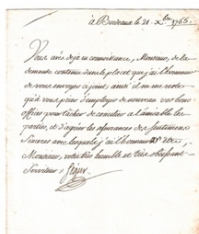 à Bordeaux le 21. Xbre 1765.
Vous avés deja eu connoissance, Monsieur, de la
demande contenue dans le placet que j'ai l'honneur
de vous envoyer cy joint, ainsi il ne me reste
qu'à vous prier d'employer de nouveau vos bons
offices pour tâcher de concilier à l'amiable les
parties, et d'agréer les assurances des sentimens
sinceres avec lesquels j'ai l'honneur d'être,
Monsieur, votre très humble et très obeissant
Serviteur